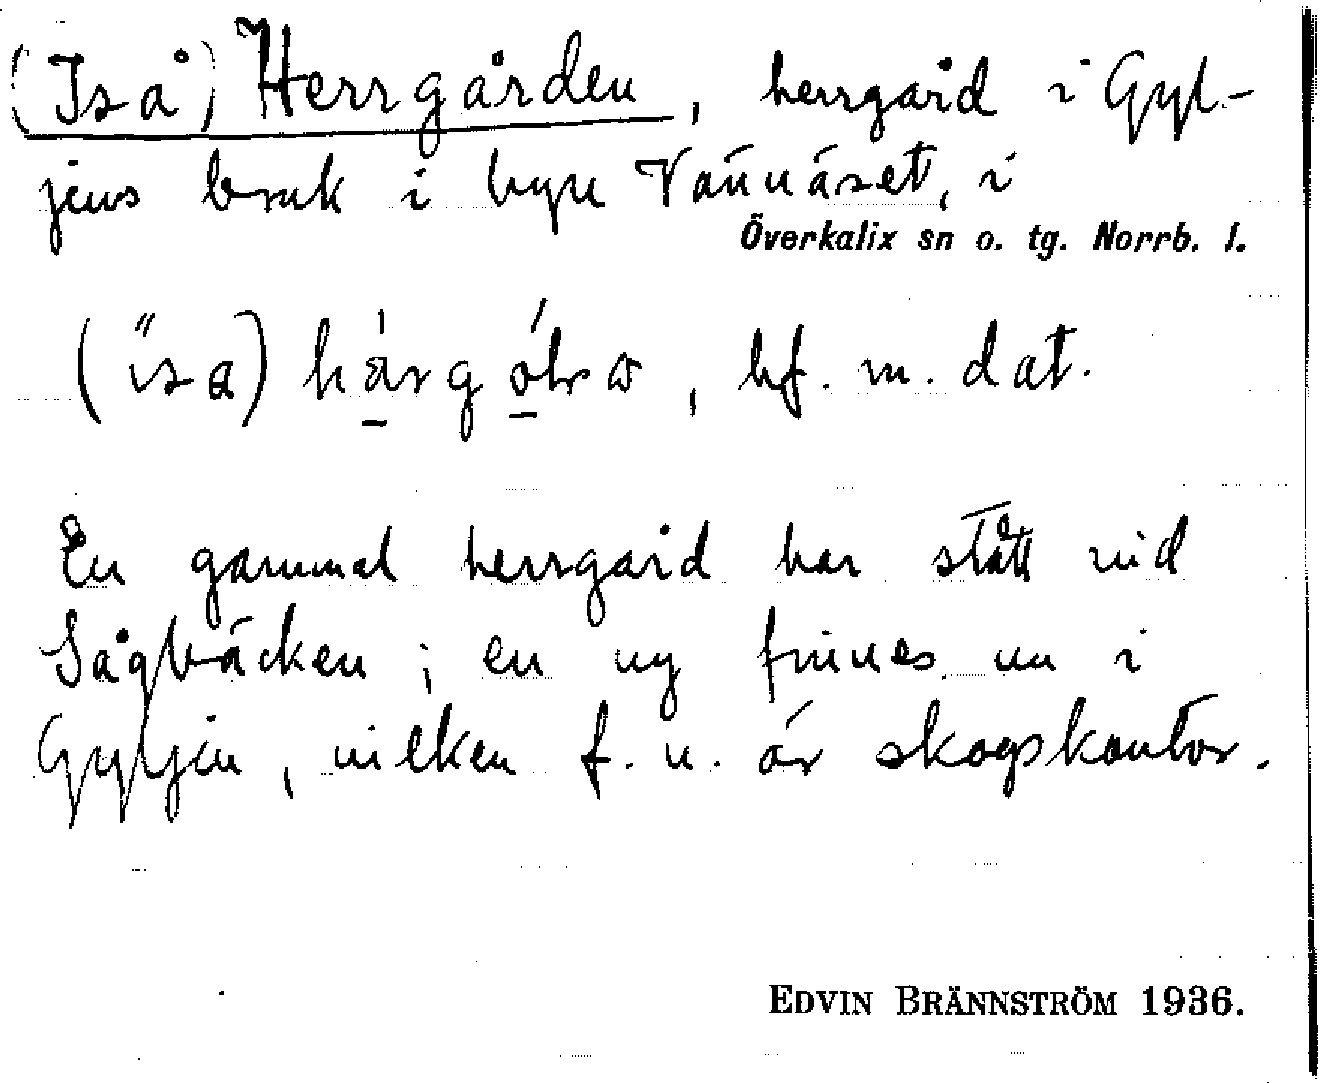 (Iså) Herrgården, herrgård i Gyl-
jens bruk i byn Vännäset, i
Överkalix sn o. tg. Norrb. l.
bf. m. dat.
En gammal herrgård har stått vid
Sågbäcken; en ny finnes nu i
Gyljen, vilken f. n. är skogskontor.
EDVIN BRÄNNSTRÖM 1936.